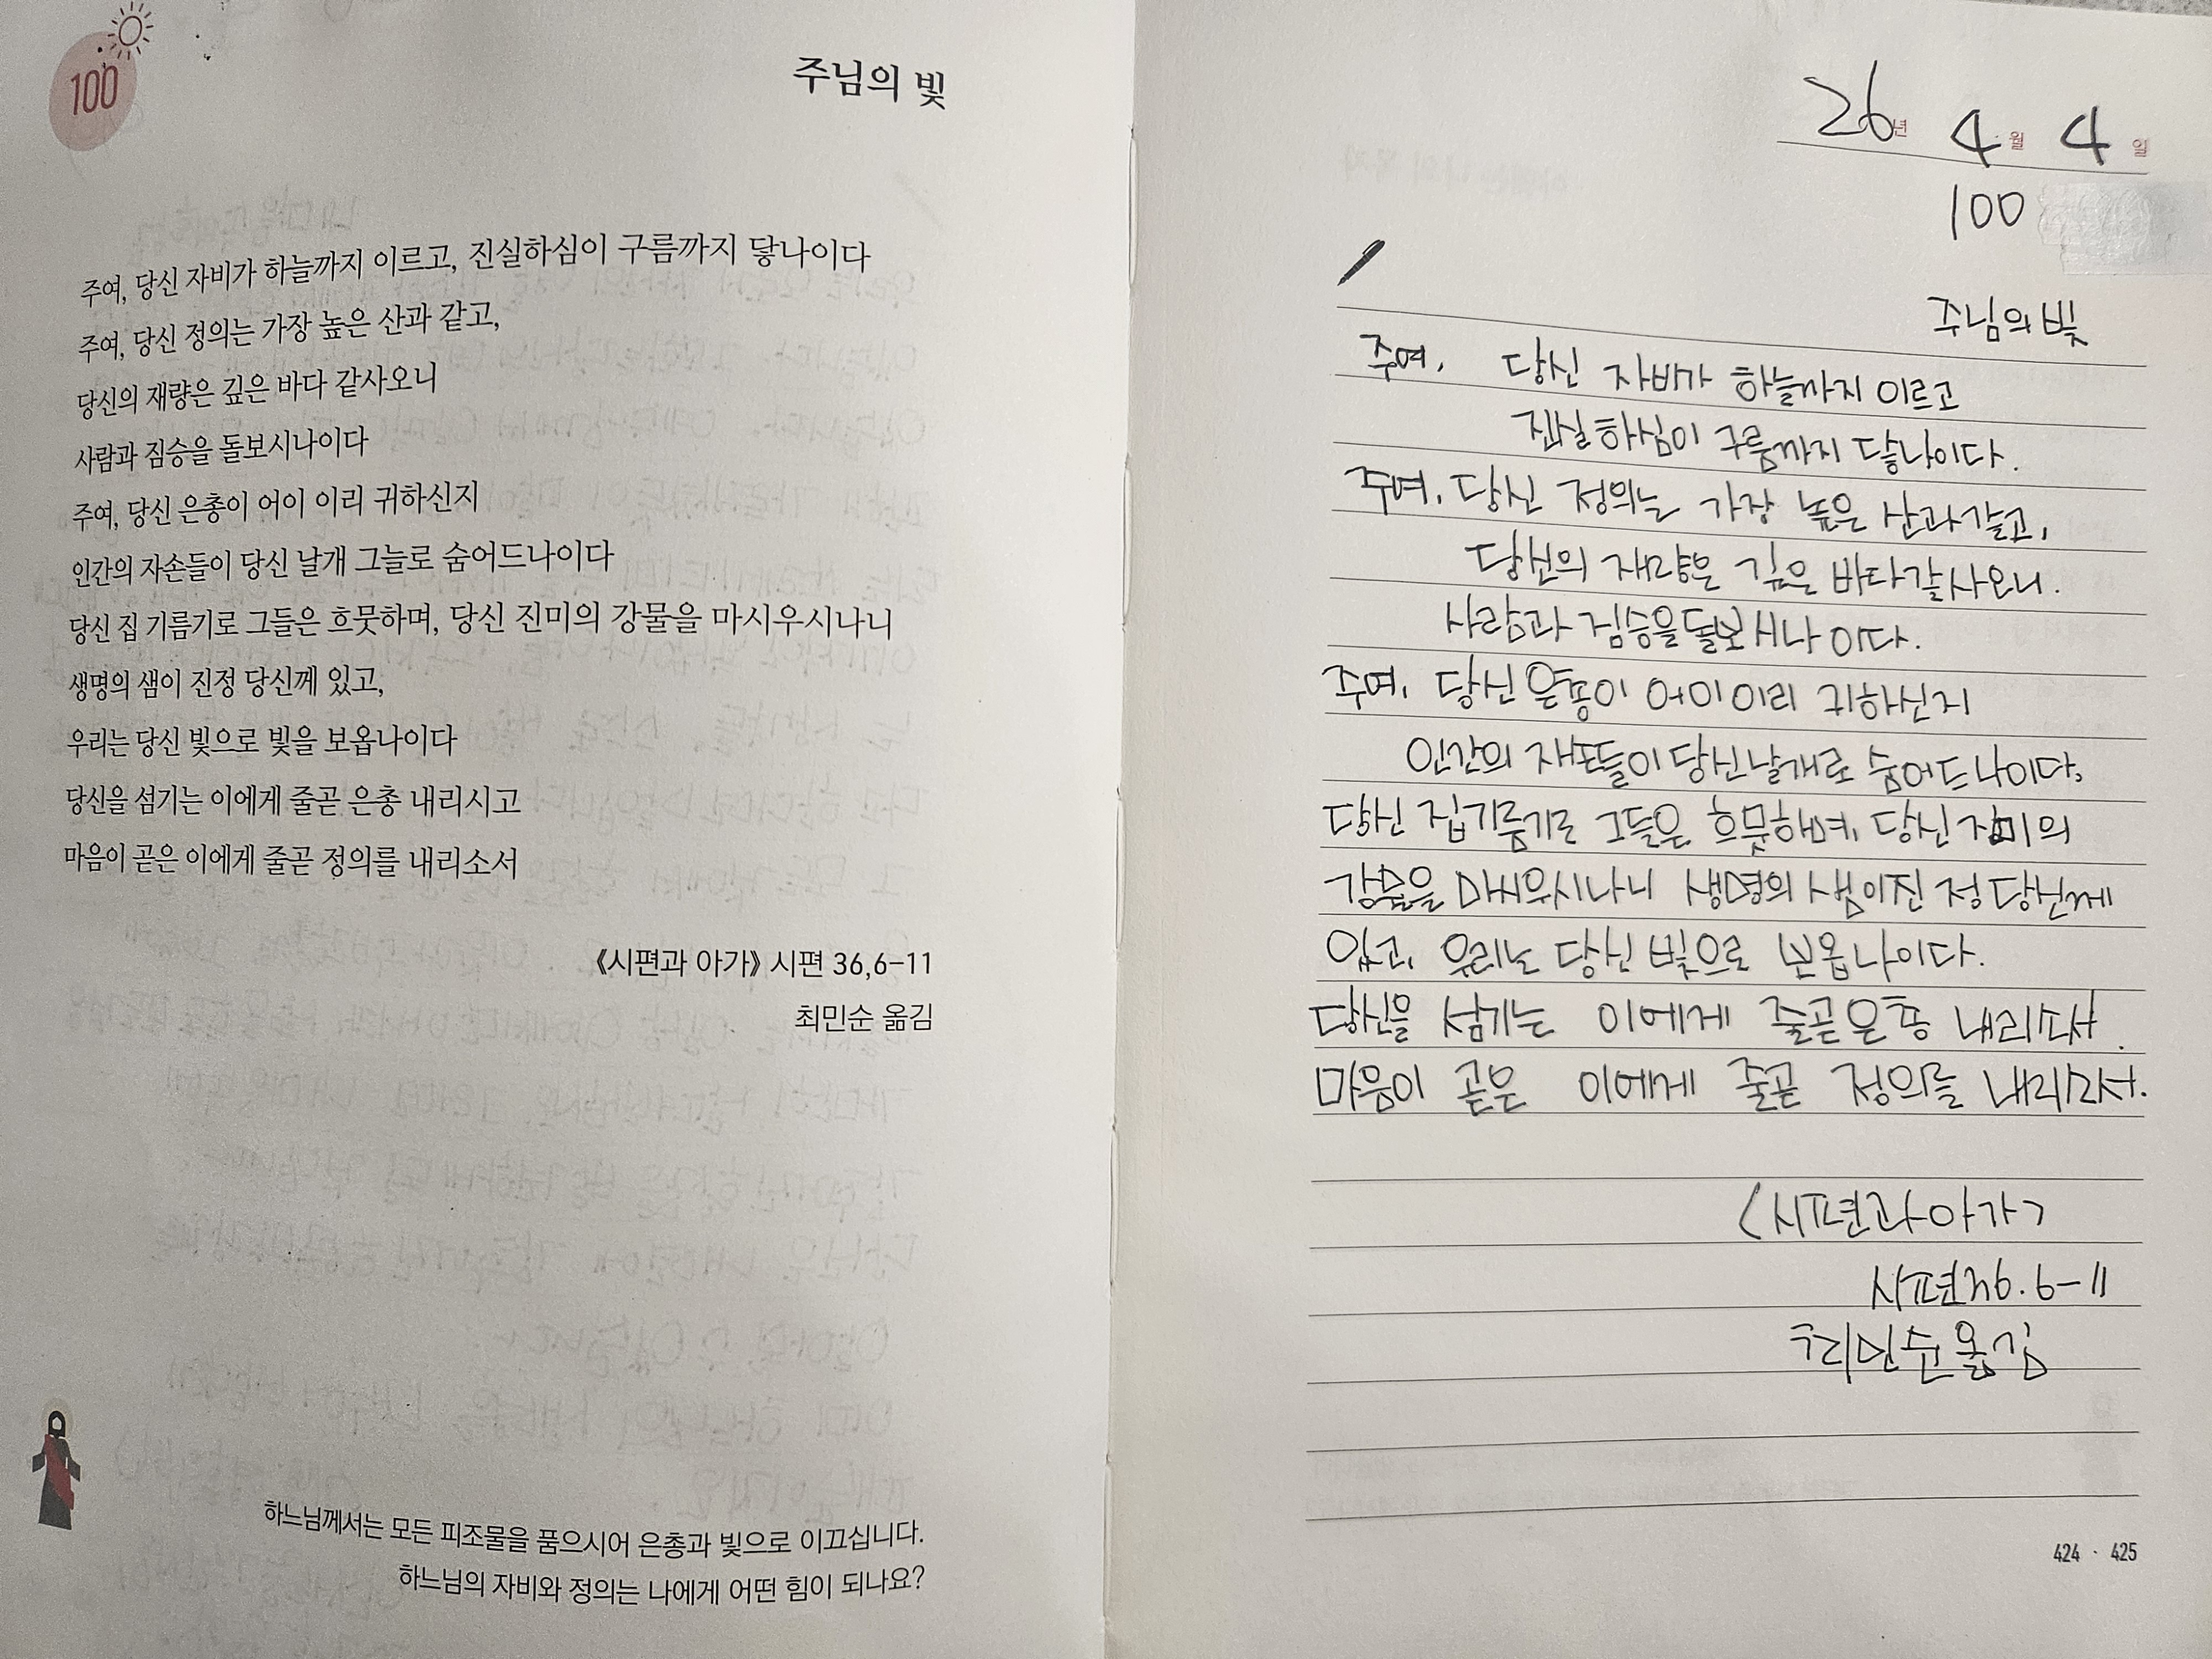 100
주님의 빛
주여, 당신 자비가 하늘까지 이르고, 진실하심이 구름까지 닿나이다
주여, 당신 정의는 가장 높은 산과 같고,
당신의 재량은 깊은 바다 같사오니
사람과 짐승을 돌보시나이다
주여, 당신 은총이 어이 이리 귀하신지
인간의 자손들이 당신 날개 그늘로 숨어드나이다
당신 집 기름기로 그들은 흐뭇하며, 당신 진미의 강물을 마시우시나니
생명의 샘이 진정 당신께 있고,
우리는 당신 빛으로 빛을 보옵나이다
당신을 섬기는 이에게 줄곧 은총 내리시고
마음이 곧은 이에게 줄곧 정의를 내리소서
《시편과 아가》 시편 36,6-11
최민순 옮김
하느님께서는 모든 피조물을 품으시어 은총과 빛으로 이끄십니다.
하느님의 자비와 정의는 나에게 어떤 힘이 되나요?
26년 4월 4일
100
주님의 빛
주여, 당신 자비가 하늘까지 이르고
진실하심이 구름까지 닿나이다.
주여, 당신 정의는 가장 높은 산과 같고,
당신의 재량은 깊은 바다 같사오니.
사람과 짐승을 돌보시나이다.
주여, 당신 은총이 어이 이리 귀하신지
인간의 당신 날개로 숨어드나이다.
당신 집 기름기로 그들은 흐뭇하며, 당신 진미의
강물을 마시우시나니 생명의 샘이 진정 당신께
있고, 우리는 당신 빛으로 이다.
당신을 섬기는 이에게 줄곧 은총 내리소서.
마음이 곧은 이에게 줄곧 정의를 내리소서.
<시편과 아가>
시편 6-11
최민순 옮김
424 · 425